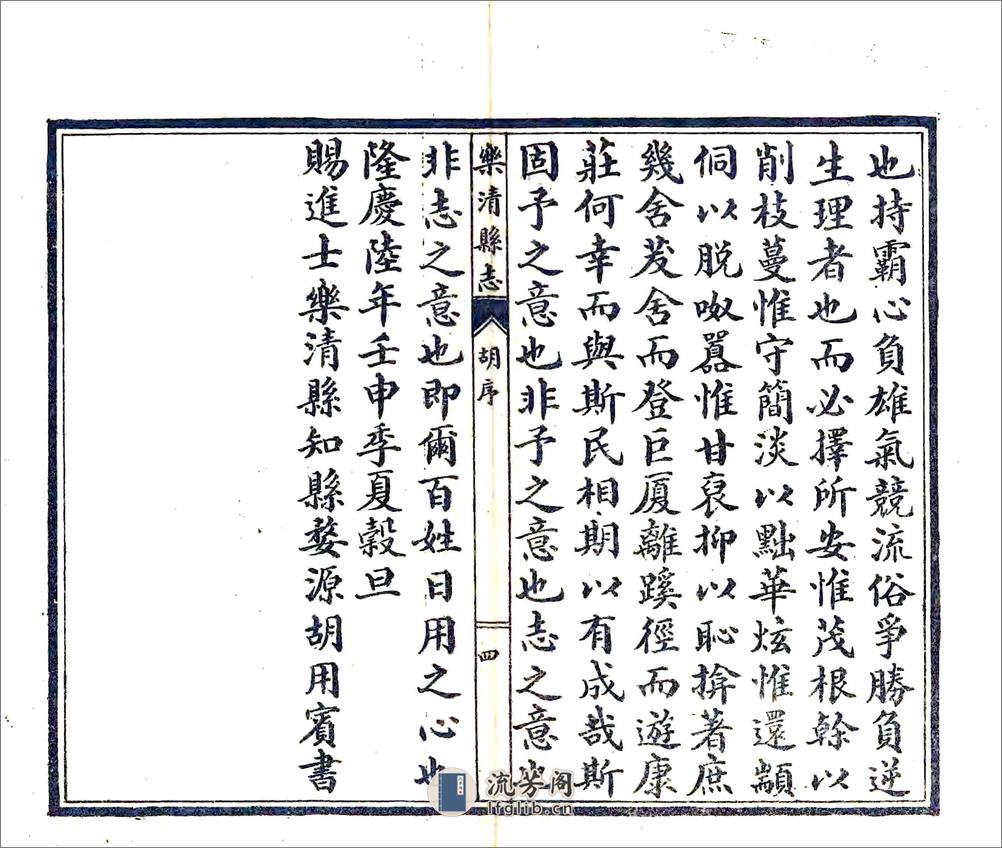 也持霸心負雄氣競流俗爭勝負逆
生理者也而必擇所安惟茂根榦以
削枝蔓惟守簡淡以黜華炫惟還顓
侗以脫呶囂惟甘裒抑以恥揜著庶
幾舍茇舍而登巨厦離蹊徑而遊康
莊何幸而與斯民相期以有成哉斯
固予之意也非予之意也志之意也
樂清縣志
胡序
四
非志之意也即爾百姓日用之心也
隆慶陸年壬申季夏穀旦
賜進士樂清縣知縣婺源胡用賓書
流芳阁
lfglib.cn